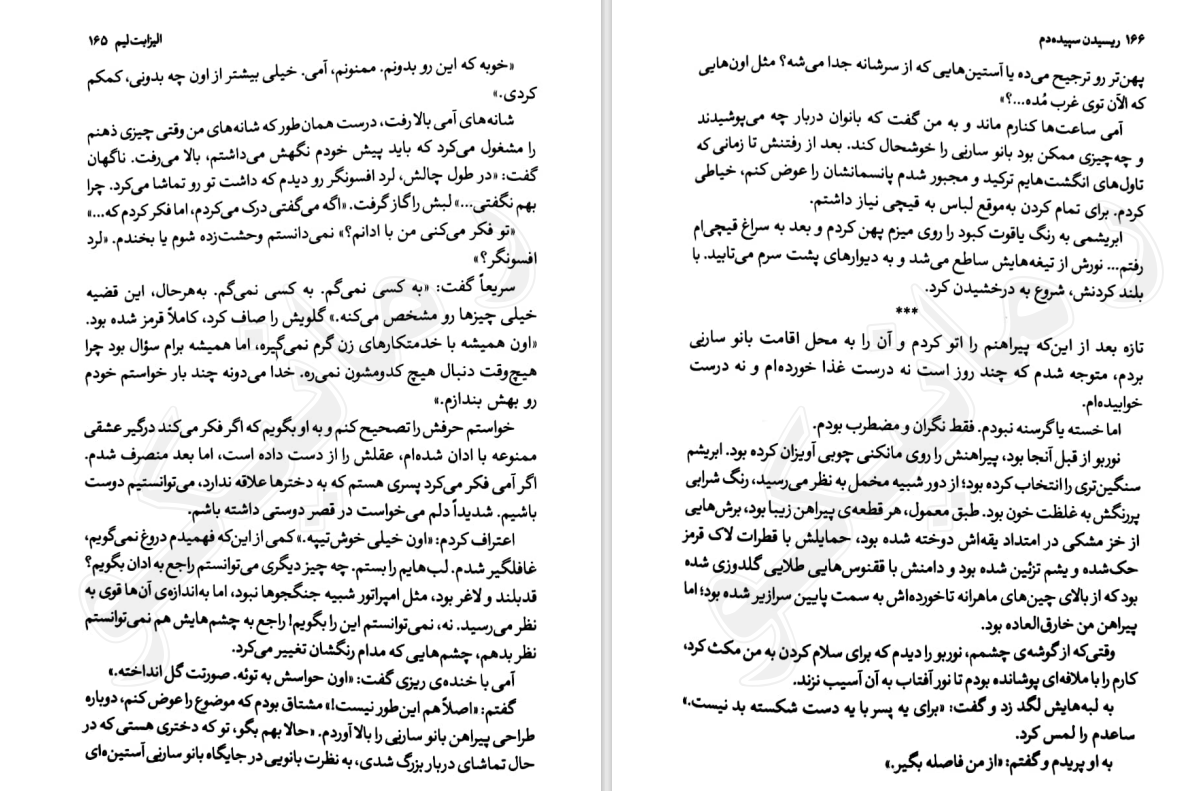 الیزابت‌لیم ۱۶۵
«خوبه که این رو بدونم. ممنونم، آمی. خیلی بیشتر از اون چه بدونی، کمکم
کردی.»
شانه‌های آمی بالا رفت، درست همان‌طور که شانه‌های من وقتی چیزی ذهنم
را مشغول می‌کرد که باید پیش خودم نگهش می‌داشتم، بالا می‌رفت. ناگهان
گفت: «در طول چالش، لرد افسونگر رو دیدم که داشت تو رو تماشا می‌کرد. چرا
بهم نگفتی...» لبش را گاز گرفت. «اگه می‌گفتی درک می‌کردم، اما فکر کردم که...»
«تو فکر می‌کنی من با ادانم؟» نمی‌دانستم وحشت‌زده شوم یا بخندم. «لرد
افسونگر؟»
سریعاً گفت: «به کسی نمی‌گم. به کسی نمی‌گم. به‌هرحال، این قضیه
خیلی چیزها رو مشخص می‌کنه.» گلویش را صاف کرد، کاملاً قرمز شده بود.
«اون همیشه با خدمتکارهای زن گرم نمی‌گیره، اما همیشه برام سؤال بود چرا
هیچ‌وقت دنبال هیچ کدومشون نمی‌ره. خدا می‌دونه چند بار خواستم خودم
رو بهش بندازم.»
خواستم حرفش را تصحیح کنم و به او بگویم که اگر فکر می‌کند درگیر عشقی
ممنوعه با ادان شده‌ام، عقلش را از دست داده است، اما بعد منصرف شدم.
اگر آمی فکر می‌کرد پسری هستم که به دخترها علاقه ندارد، می‌توانستیم دوست
باشیم. شدیداً دلم می‌خواست در قصر دوستی داشته باشم.
اعتراف کردم: «اون خیلی خوش‌تیپه.» کمی از این‌که فهمیدم دروغ نمی‌گویم،
غافلگیر شدم. لب‌هایم را بستم. چه چیز دیگری می‌توانستم راجع به ادان بگویم؟
قدبلند و لاغر بود، مثل امپراتور شبیه جنگجوها نبود، اما به‌اندازه‌ی آن‌ها قوی به
نظر می‌رسید. نه، نمی‌توانستم این را بگویم! راجع به چشم‌هایش هم نمی‌توانستم
نظر بدهم، چشم‌هایی که مدام رنگشان تغییر می‌کرد.
آمی با خنده‌ی ریزی گفت: «اون حواسش به توئه. صورتت گل انداخته.»
گفتم: «اصلاً هم این‌طور نیست!» مشتاق بودم که موضوع را عوض کنم، دوباره
طراحی پیراهن بانو سارنی را بالا آوردم. «حالا بهم بگو، تو که دختری هستی که در
حال تماشای دربار بزرگ شدی، به نظرت بانویی در جایگاه بانو سارنی آستین‌ه‌ای
۱۶۶ ریسیدن سپیده‌دم
پهن‌تر رو ترجیح می‌ده یا آستین‌هایی که از سرشانه جدا می‌شه؟ مثل اون‌هایی
که الآن توی غرب مُده...؟»
آمی ساعت‌ها کنارم ماند و به من گفت که بانوان دربار چه می‌پوشیدند
و چه‌چیزی ممکن بود بانو سارنی را خوشحال کند. بعد از رفتنش تا زمانی که
تاول‌های انگشت‌هایم ترکید و مجبور شدم پانسمانشان را عوض کنم، خیاطی
کردم. برای تمام کردن به‌موقع لباس به قیچی نیاز داشتم.
ابریشمی به رنگ یاقوت کبود را روی میزم پهن کردم و بعد به سراغ قیچی‌ام
رفتم... نورش از تیغه‌هایش ساطع می‌شد و به دیوارهای پشت سرم می‌تابید. با
بلند کردنش، شروع به درخشیدن کرد.
***
تازه بعد از این‌که پیراهنم را اتو کردم و آن را به محل اقامت بانو سارنی
بردم، متوجه شدم که چند روز است نه درست غذا خورده‌ام و نه درست
خوابیده‌ام.
اما خسته یا گرسنه نبودم. فقط نگران و مضطرب بودم.
نوربو از قبل آنجا بود، پیراهنش را روی مانکنی چوبی آویزان کرده بود. ابریشم
سنگین‌تری را انتخاب کرده بود؛ از دور شبیه مخمل به نظر می‌رسید، رنگ شرابی
پررنگش به غلظت خون بود. طبق معمول، هر قطعه‌ی پیراهن زیبا بود، برش‌هایی
از خز مشکی در امتداد یقه‌اش دوخته شده بود، حمایلش با قطرات لاک قرمز
حک‌شده و یشم تزئین شده بود و دامنش با ققنوس‌هایی طلایی گلدوزی شده
بود که از بالای چین‌های ماهرانه تاخورده‌اش به سمت پایین سرازیر شده بود؛ اما
پیراهن من خارق‌العاده بود.
وقتی‌که از گوشه‌ی چشمم، نوربو را دیدم که برای سلام کردن به من مکث کرد،
کارم را با ملافه‌ای پوشانده بودم تا نور آفتاب به آن آسیب نزند.
به لبه‌هایش لگد زد و گفت: «برای یه پسر با یه دست شکسته بد نیست.»
ساعدم را لمس کرد.
به او پریدم و گفتم: «از من فاصله بگیر.»